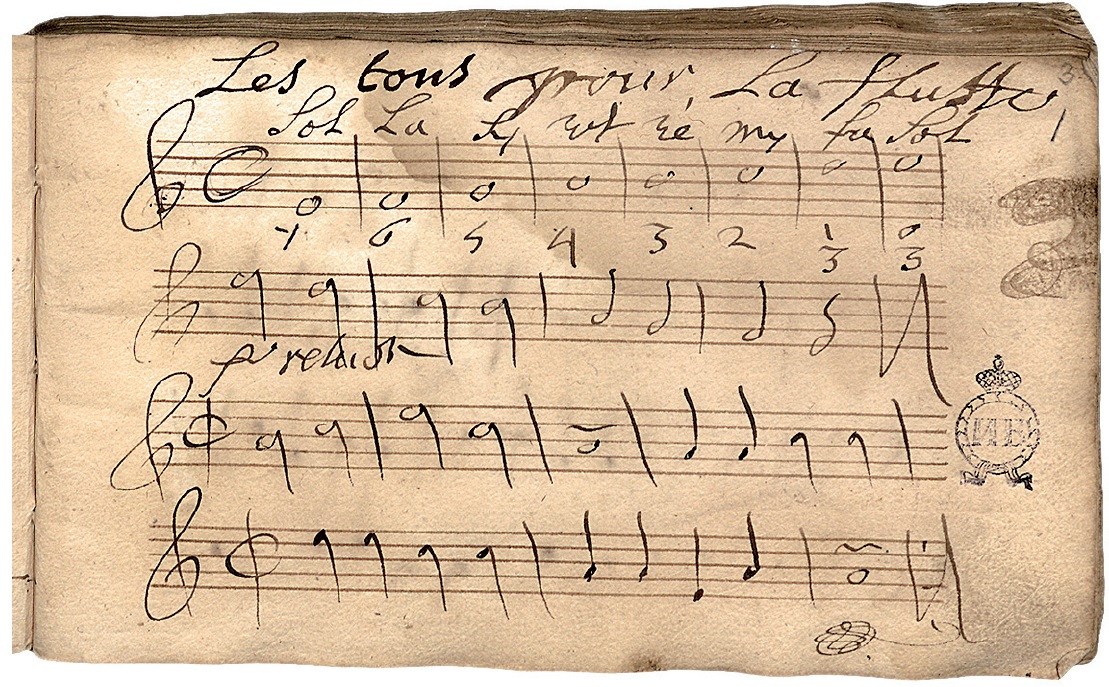 Les tons pour La fluttu
Sol La Sy ut ré my fa Sol
7 6 5 4 3 2 1 0
3 3
prelude